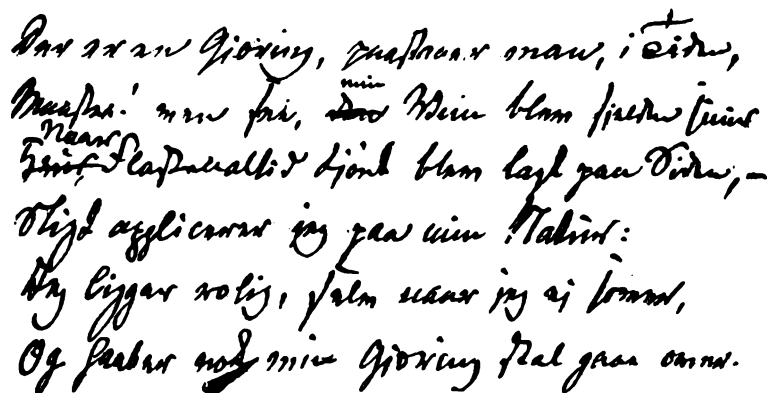 Der er en Gjæring, paastaaer man, i Tiden,
Mæster! men see, min Viin blev sielden suur
Naar Flasken altid smukt blev lagt paa Siden, –
Sligt applicerer jeg paa min Natur:
Jeg ligger rolig, selv naar jeg ej sover,
Og haaber nok min Gjæring skal gaae over.